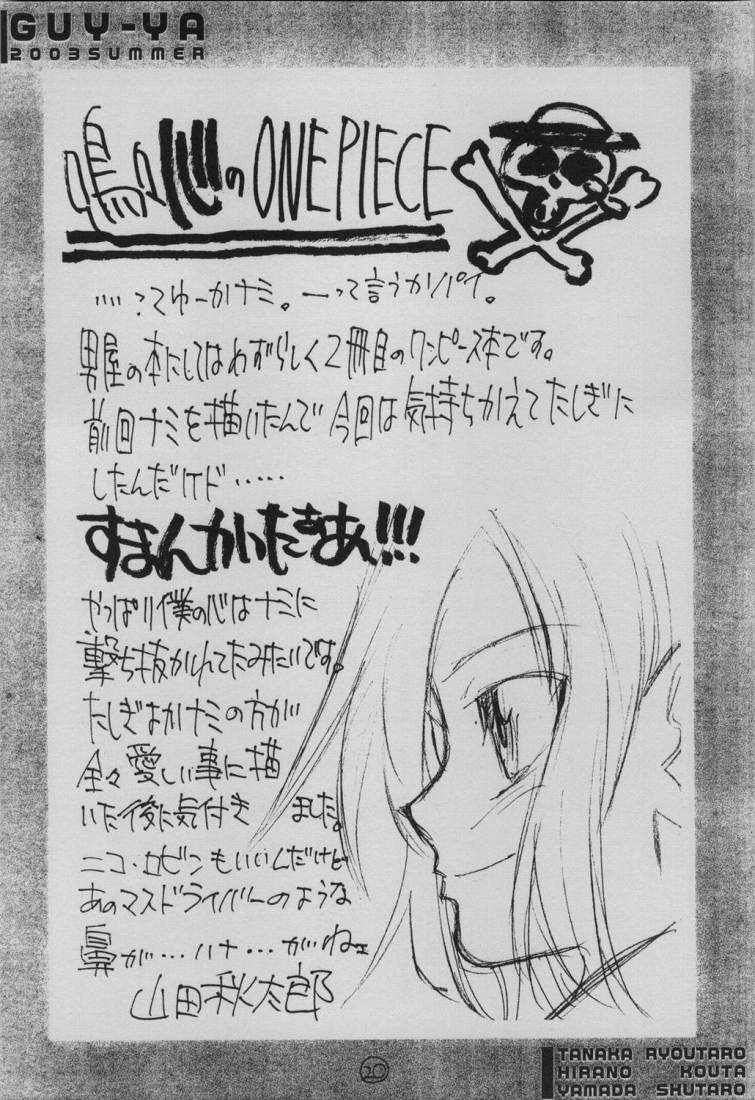 GUY-YA
2003SUMMER
のONE PIECE
……ってゆーかナミ。―って言うかパイ。
男屋の本にしてはめずらしく2冊目のワンピース本です。
前回ナミを描いたんで今回は気持ちかえてたしぎに
したんだけど……
すまんかいたさあん!!!
やっぱり僕の心はナミに
撃ち抜かれてたみたいです。
たしぎよかナミの方が
全々愛しい事に描
いた後に気付き ました。
ニコ・ロビンもいいんだけど
あのマスドライバーのような
鼻が…ハナ…がねェ
山田秋太郎
20
TANAKA RYOUTARO
HIRANO KOUTA
YAMADA SHUTARO